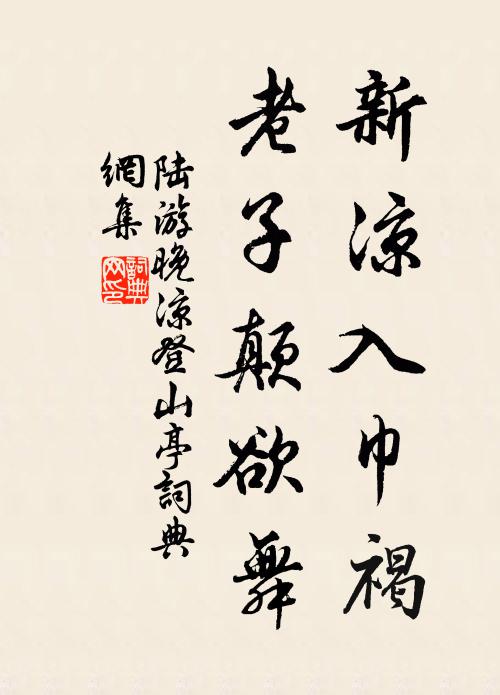 新涼入巾褐
老子顛欲舞
陆游晚涼登山亭詞典
網集
詞典
网印